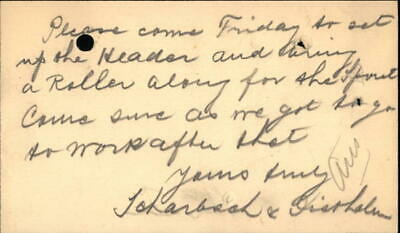 Please come Friday to set
up the Header and bring
a Roller along for the Spout
Come sure as we got to go
to work after that
Yours truly
Scharbach &